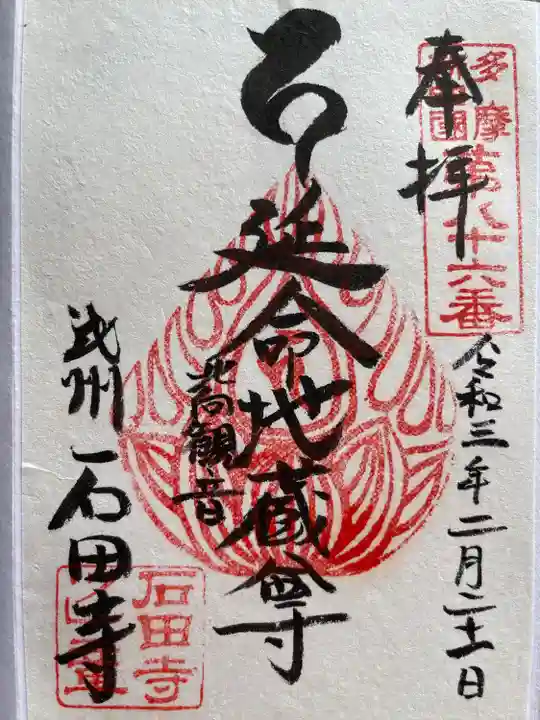 奉拝
多摩
第八十六番
令和三年二月二十一日
延命地蔵尊
北向観音
武州 石田寺
石田寺